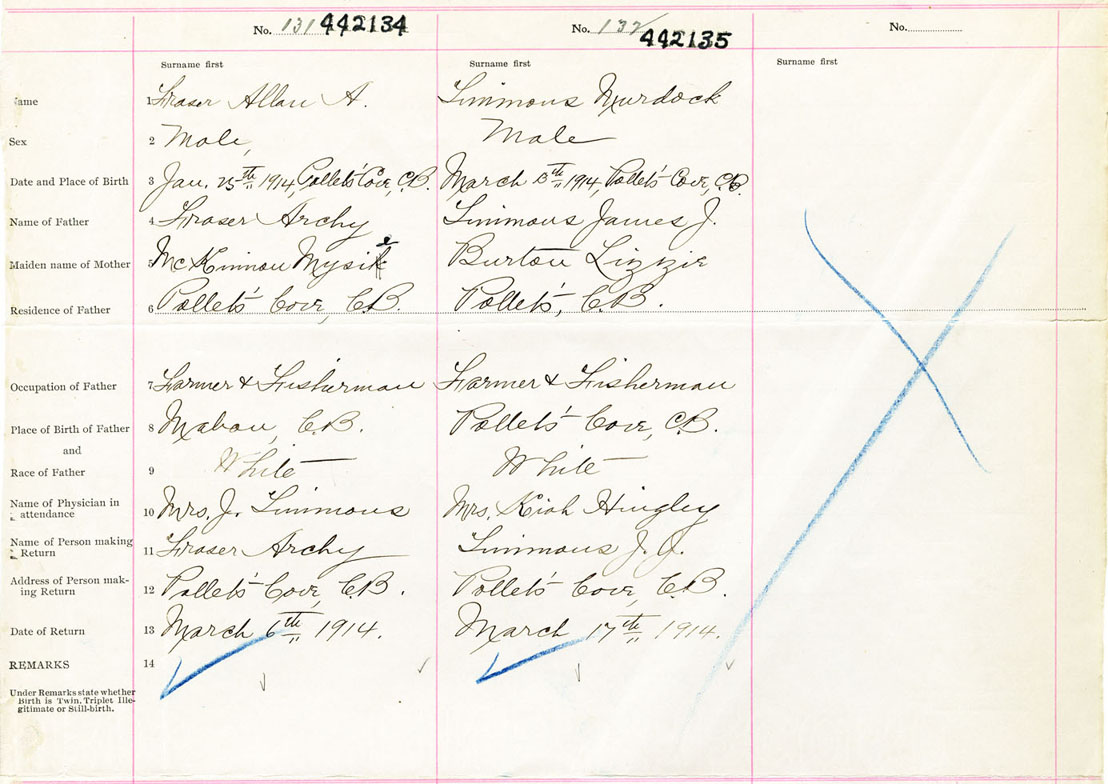 No. 131 442134
No. 132 442135
No.
Surname first
Surname first
Surname first
Name 1 Fraser Allan A. Simmons Murdock
Sex 2 Male, Male
Date and Place of Birth 3 Jan. 25th 1914, Pollet's Cove, C.B. March 13th 1914, Pollet's Cove, C.B.
Name of Father 4 Fraser Archy Simmons James J.
Maiden name of Mother 5 McKinnon Burton Lizzie
Residence of Father 6 Pollets' Cove, C.B. Pollets', C.B.
Occupation of Father 7 Farmer & Fisherman Farmer & Fisherman
Place of Birth of Father 8 Mabou, C.B. Pollets' Cove, C.B.
and
Race of Father 9 White White
Name of Physician in
attendance 10 Mrs. J. Simmons Mrs. Hingley
Name of Person making
Return 11 Fraser Archy Simmons J. J.
Address of Person mak-
ing Return 12 Pollets' Cove, C.B. Pollets' Cove, C.B.
Date of Return 13 March 6th 1914. March 17th 1914.
REMARKS 14
Under Remarks state whether
Birth is Twin, Triplet Ille-
gitimate or Still-birth.